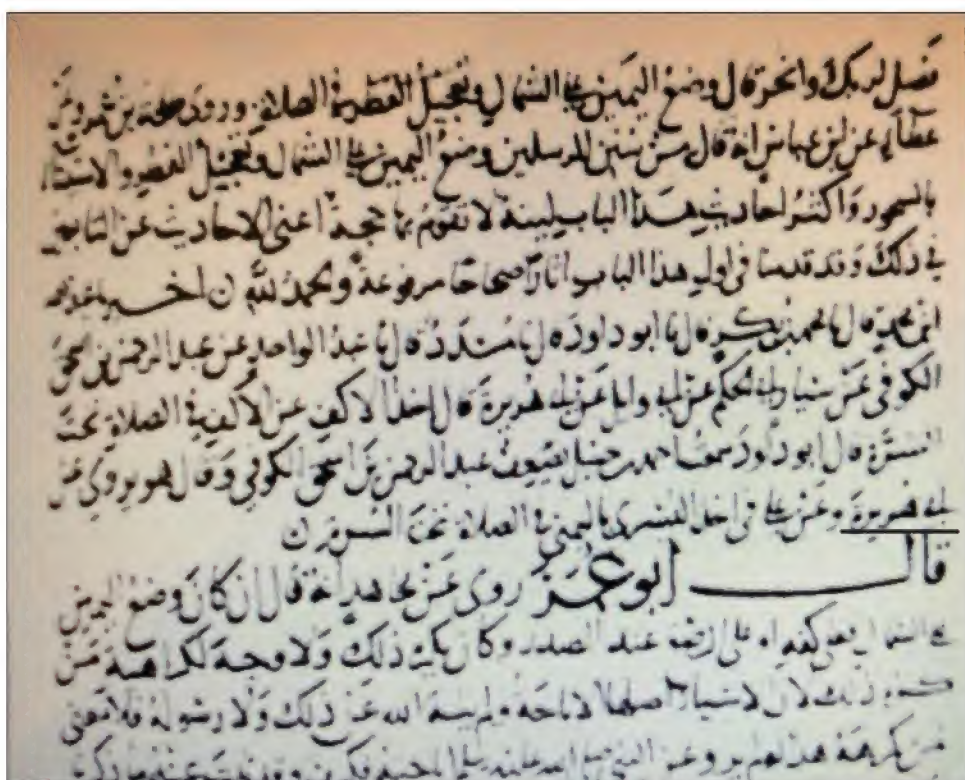 فصل لربك وانحر قال وضع اليمين على الشمال وتعجيل الفطر في الصلاة وروى طلحة بن عمرو عن
عطاء عن ابن عباس انه قال من سنن المرسلين وضع اليمين على الشمال وتعجيل الفطر والاستيناء
بالسحور واكثر احاديث هذا الباب لينة لا تقوم بها حجة اعني الاحاديث عن التابعين
في ذلك وقد قدمنا في اول هذا الباب اثارا صحاحا مرفوعة والحمد لله ن اخبرنا عبد الله
ابن محمد قال نا محمد بن بكر قال نا ابو داود قال نا مسدد قال نا عبد الواحد عن عبد الرحمن بن اسحق
الكوفي عن سيار ابي الحكم عن ابي وايل عن ابي هريرة قال اخذ الاكف عن الاكف في الصلاة تحت
السرة قال ابو داود سمعت احمد بن حنبل يضعف عبد الرحمن بن اسحق الكوفي وقال هو يروي عن
ابي هريرة وعن علي في اخذ اليسرى باليمنى في الصلاة تحت السرة ن
قال ابو عمر روى عن مجاهد انه قال ان كان وضع اليمين
على الشمال فعلى كفه او على الرسغ عند الصدر وكان يكره ذلك ولا وجه لكراهية من
كره ذلك لان الاشياء اصلها الاباحة ولم ينه الله عن ذلك ولا رسوله فلا معنى